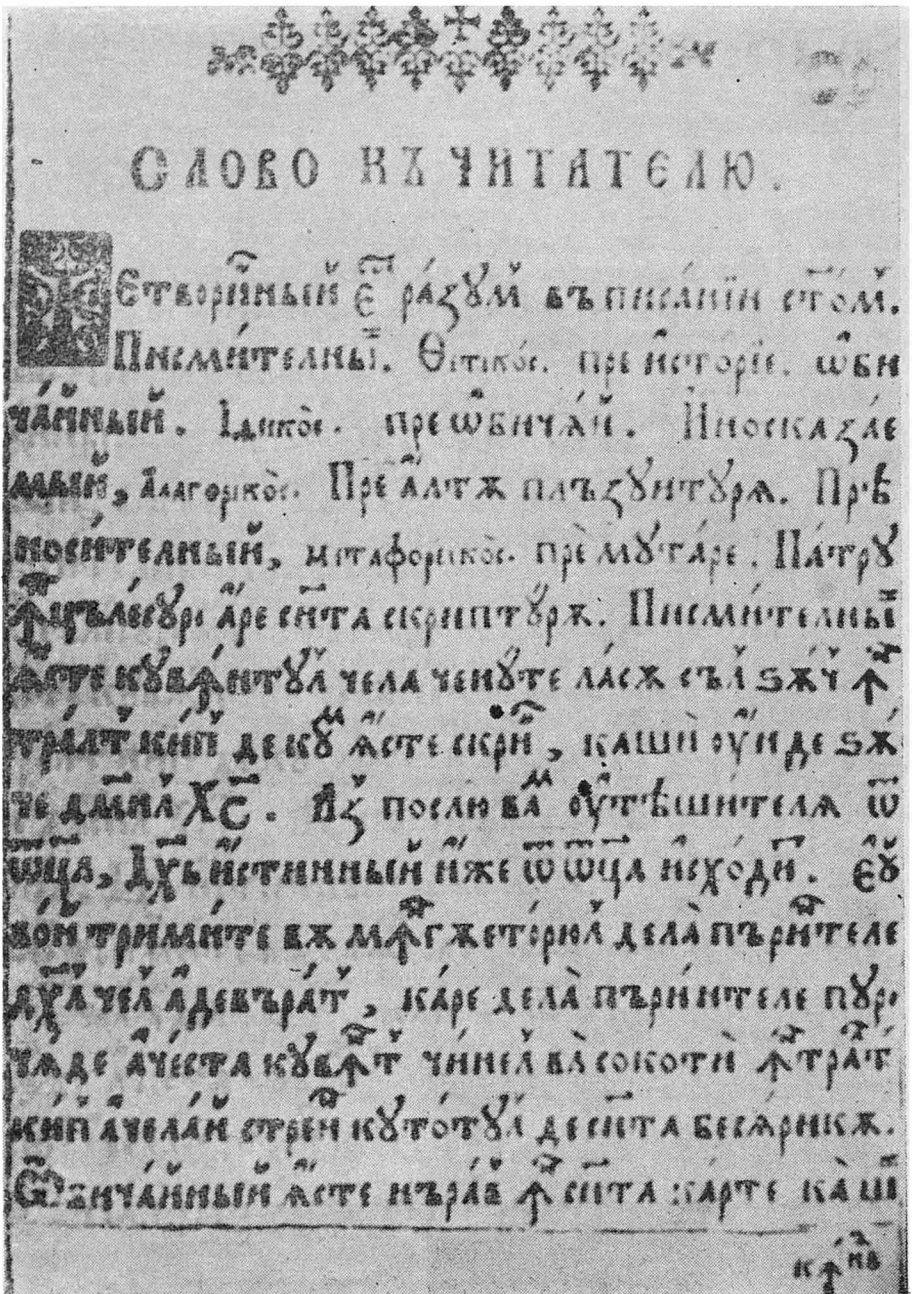 СЛОВО КЪ ЧИТАТЕЛЮ.
Четвори́нный є҃ ра́зꙋм въ писа́нїи ст҃ом.
Писми́телный. Ѳїтїко́с. пре и҆сто́рїе. ѡ҆би
ча́йный. Їдико̀с. пре ѡ҆бичѧ́й. Иносказа́е
мый, а҆лагорико̀с. Пре а҆лтѫ плъзꙋитꙋрѧ. Прѣ
носи́телный, метафорико̀с. прѐ мꙋта́ре. Па́трꙋ
ꙟцъле́сꙋрі а҆́ре сф҃нта скриптꙋ́рѫ. Писми́телный
ꙗ҆сте кꙋвꙟнтꙋл чела че нꙋ те ла́сѫ съ л ѕѫ́ч ꙟ
тра́лт кип де кꙋм ꙗ҆сте скри, кашѝ ѹ҆нде ѕѫ́
че дмнꙋл Хс҃. Аз послю вам ѹ҆тѣ́шителѧ ѿ
ѿца, Дх҃ъ и҆́стинный и҆́же ѿ ѿца и҆схо́ди. Єꙋ
во́й трими́те вѫ мꙟгѫето́рюл дела̀ пъри́нтеле
дх҃ꙋл чел а҆девъра́т, ка́ре дела̀ пъри́нтеле пꙋр
чѧ́де а҆че́ста кꙋвꙟт чи́нева̀ сокотѝ ꙟтра́лт
кип а҆чела́й стрен кꙋ то́тꙋл де сф҃нта бесѧ́рикѫ.
Ѡ҆бича́йный ꙗ҆сте нъра́в ꙟ сф҃нта ка́рте ка̀ ши
кꙟ нв